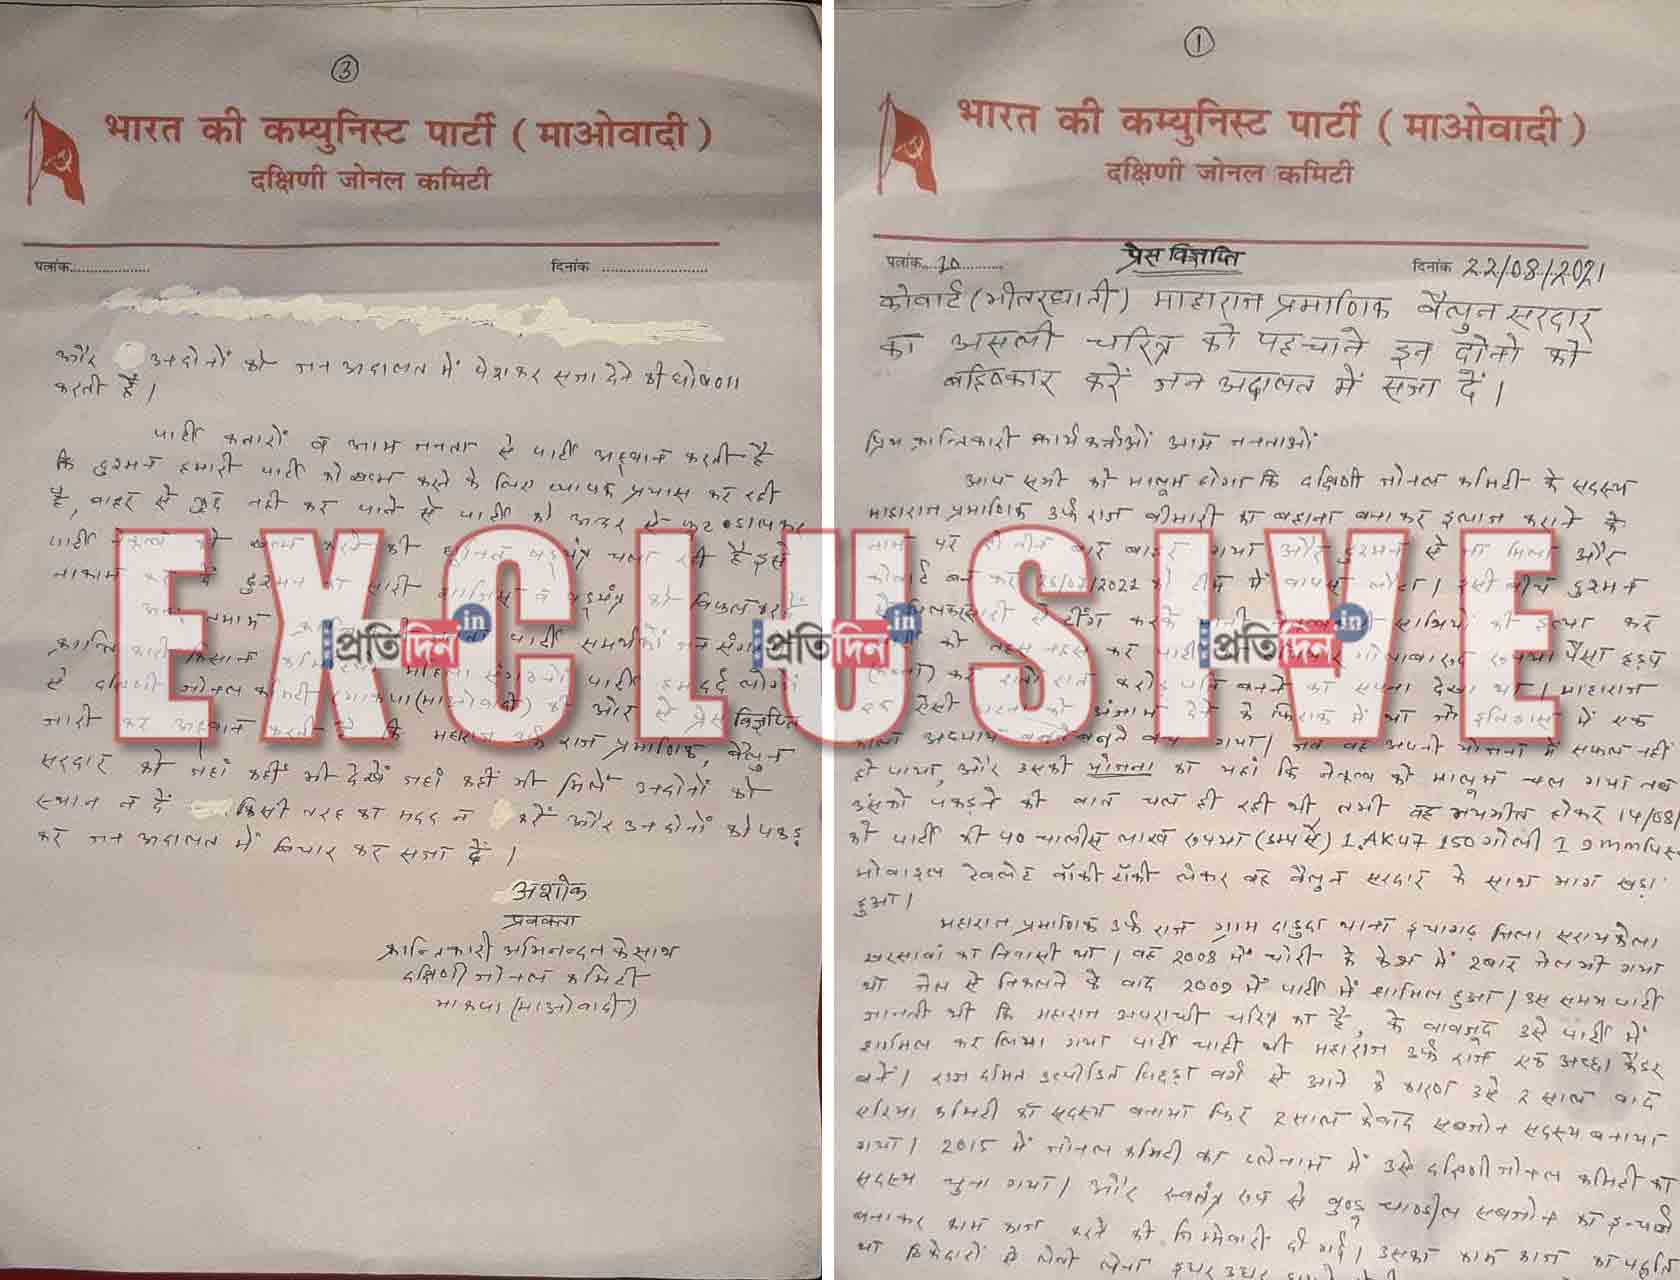 ③
भारत की कम्युनिस्ट पार्टी ( माओवादी )
दक्षिणी जोनल कमिटी
पत्रांक....................
दिनांक ............................
और उनदोनों को जन अदालत में पेशकर सजा देने की घोषणा
करती हैं।
पार्टी कतारों व आम जनता से पार्टी अह्वान करती है
कि दुश्मन हमारी पार्टी को खत्म करने के लिए व्यापक प्रयास कर रही
है, बाहर से कुछ नहीं कर पाने से पार्टी को अन्दर से फुट डालकर
पार्टी नेतृत्व को खत्म करने की षड्यंत्र चला रही है इसे
नाकाम दुश्मन का सारी साजिस व षड्यंत्र को विफल करें
क्रान्तिकारी किसान पार्टी समर्थकों जन
महिला पार्टी हमदर्द लोगों
से दक्षिणी जोनल कमिटी भाकपा(माओवादी) की ओर से प्रेस विज्ञप्ति
जारी कर अह्वान करती है कि महाराज उर्फ राज प्रमाणिक, बैलुन
सरदार को जहां कहीं भी देखें जहां कहीं भी मिलें उनदोनों को
स्थान न दें किसी तरह का मदद न करें और उनदोनों को पकड़
कर जन अदालत में विचार कर सजा दें।
अशोक
प्रवक्ता
क्रान्तिकारी अभिनन्दन के साथ
दक्षिणी जोनल कमिटी
भाकपा (माओवादी)
①
भारत की कम्युनिस्ट पार्टी ( माओवादी )
दक्षिणी जोनल कमिटी
प्रेस विज्ञप्ति
पत्रांक...10............
दिनांक 22/08/2021
कोवार्ट (भीतरघाती) माहाराज प्रमाणिक बैलुन सरदार
का असली चरित्र को पहचाने इन दोनो को
बहिष्कार करें जन अदालत में सजा दें।
प्रिय क्रान्तिकारी कार्यकर्ताओं आम जनताओं
आप सभी को मालूम होगा कि दक्षिणी जोनल कमिटी के सदस्य
माहाराज प्रमाणिक उर्फ राज बीमारी का बहाना बनाकर इलाज कराने के
नाम पर दो तीन बार बाहर गया और दुश्मन से जा मिला और
कोवार्ट बन कर /2021 को टीम में वापस लौटा। इसी बीच दुश्मन
से साथियों की हत्या कर
को तहस नहस कर पार्टी गोलाबारुद रुपया पैसा हड़प
कर रातो रात करोड़पति बनने का सपना देखा था। माहाराज
ऐसी को अंजाम देने के फिराक में था जो इतिहास में एक
काला अध्याय बनते बनते बच गया। जब वह अपनी योजना में सफल नहीं
हो पाया, और उसकी योजना का यहां कि नेतृत्व को मालूम चल गया तब
उसको पकड़ने की बात चल ही रही थी तभी वह भयभीत होकर 14/08/
को पार्टी की 40 चालीस लाख रुपया 1.AK47 150 गोली 1 9mm
मोबाइल टेबलेट वॉकी टॉकी लेकर वह बैलुन सरदार के साथ भाग खड़ा
हुआ।
महाराज प्रमाणिक उर्फ राज ग्राम दाड़ुदा थाना इचागढ़ जिला सरायकेला
खरसावां का निवासी था। वह 2008 में चोरी के केश में 2 बार जेल भी गया
था जेल से निकलने के बाद 2009 में पार्टी में शामिल हुआ। उस समय पार्टी
जानती थी कि महाराज अपराधी चरित्र का है, के बावजूद उसे पार्टी में
शामिल कर लिया गया पार्टी चाही थी महाराज उर्फ राज एक अच्छा कैडर
बनें। राज दमित उत्पीडित पिछड़ा वर्ग से आने के कारण उसे 2 साल बाद
एरिया कमिटी का सदस्य बनाया फिर 2 साल के बाद सबजोन सदस्य बनाया
गया। 2015 में जोनल कमिटी का प्लेनाम में उसे दक्षिणी जोनल कमिटी का
सदस्य चुना गया। और स्वतंत्र रुप से बुण्डू चाण्डील सबजोन का इन्चार्ज
बनाकर काम काज करने की जिम्मेवारी दी गई। उसका काम काज का पद्धति
था ठिकेदारों से लेवी लेना इधर उधर
EXCLUSIVE
प्रतिदिन in
प्रतिदिन in
प्रतिदिन in